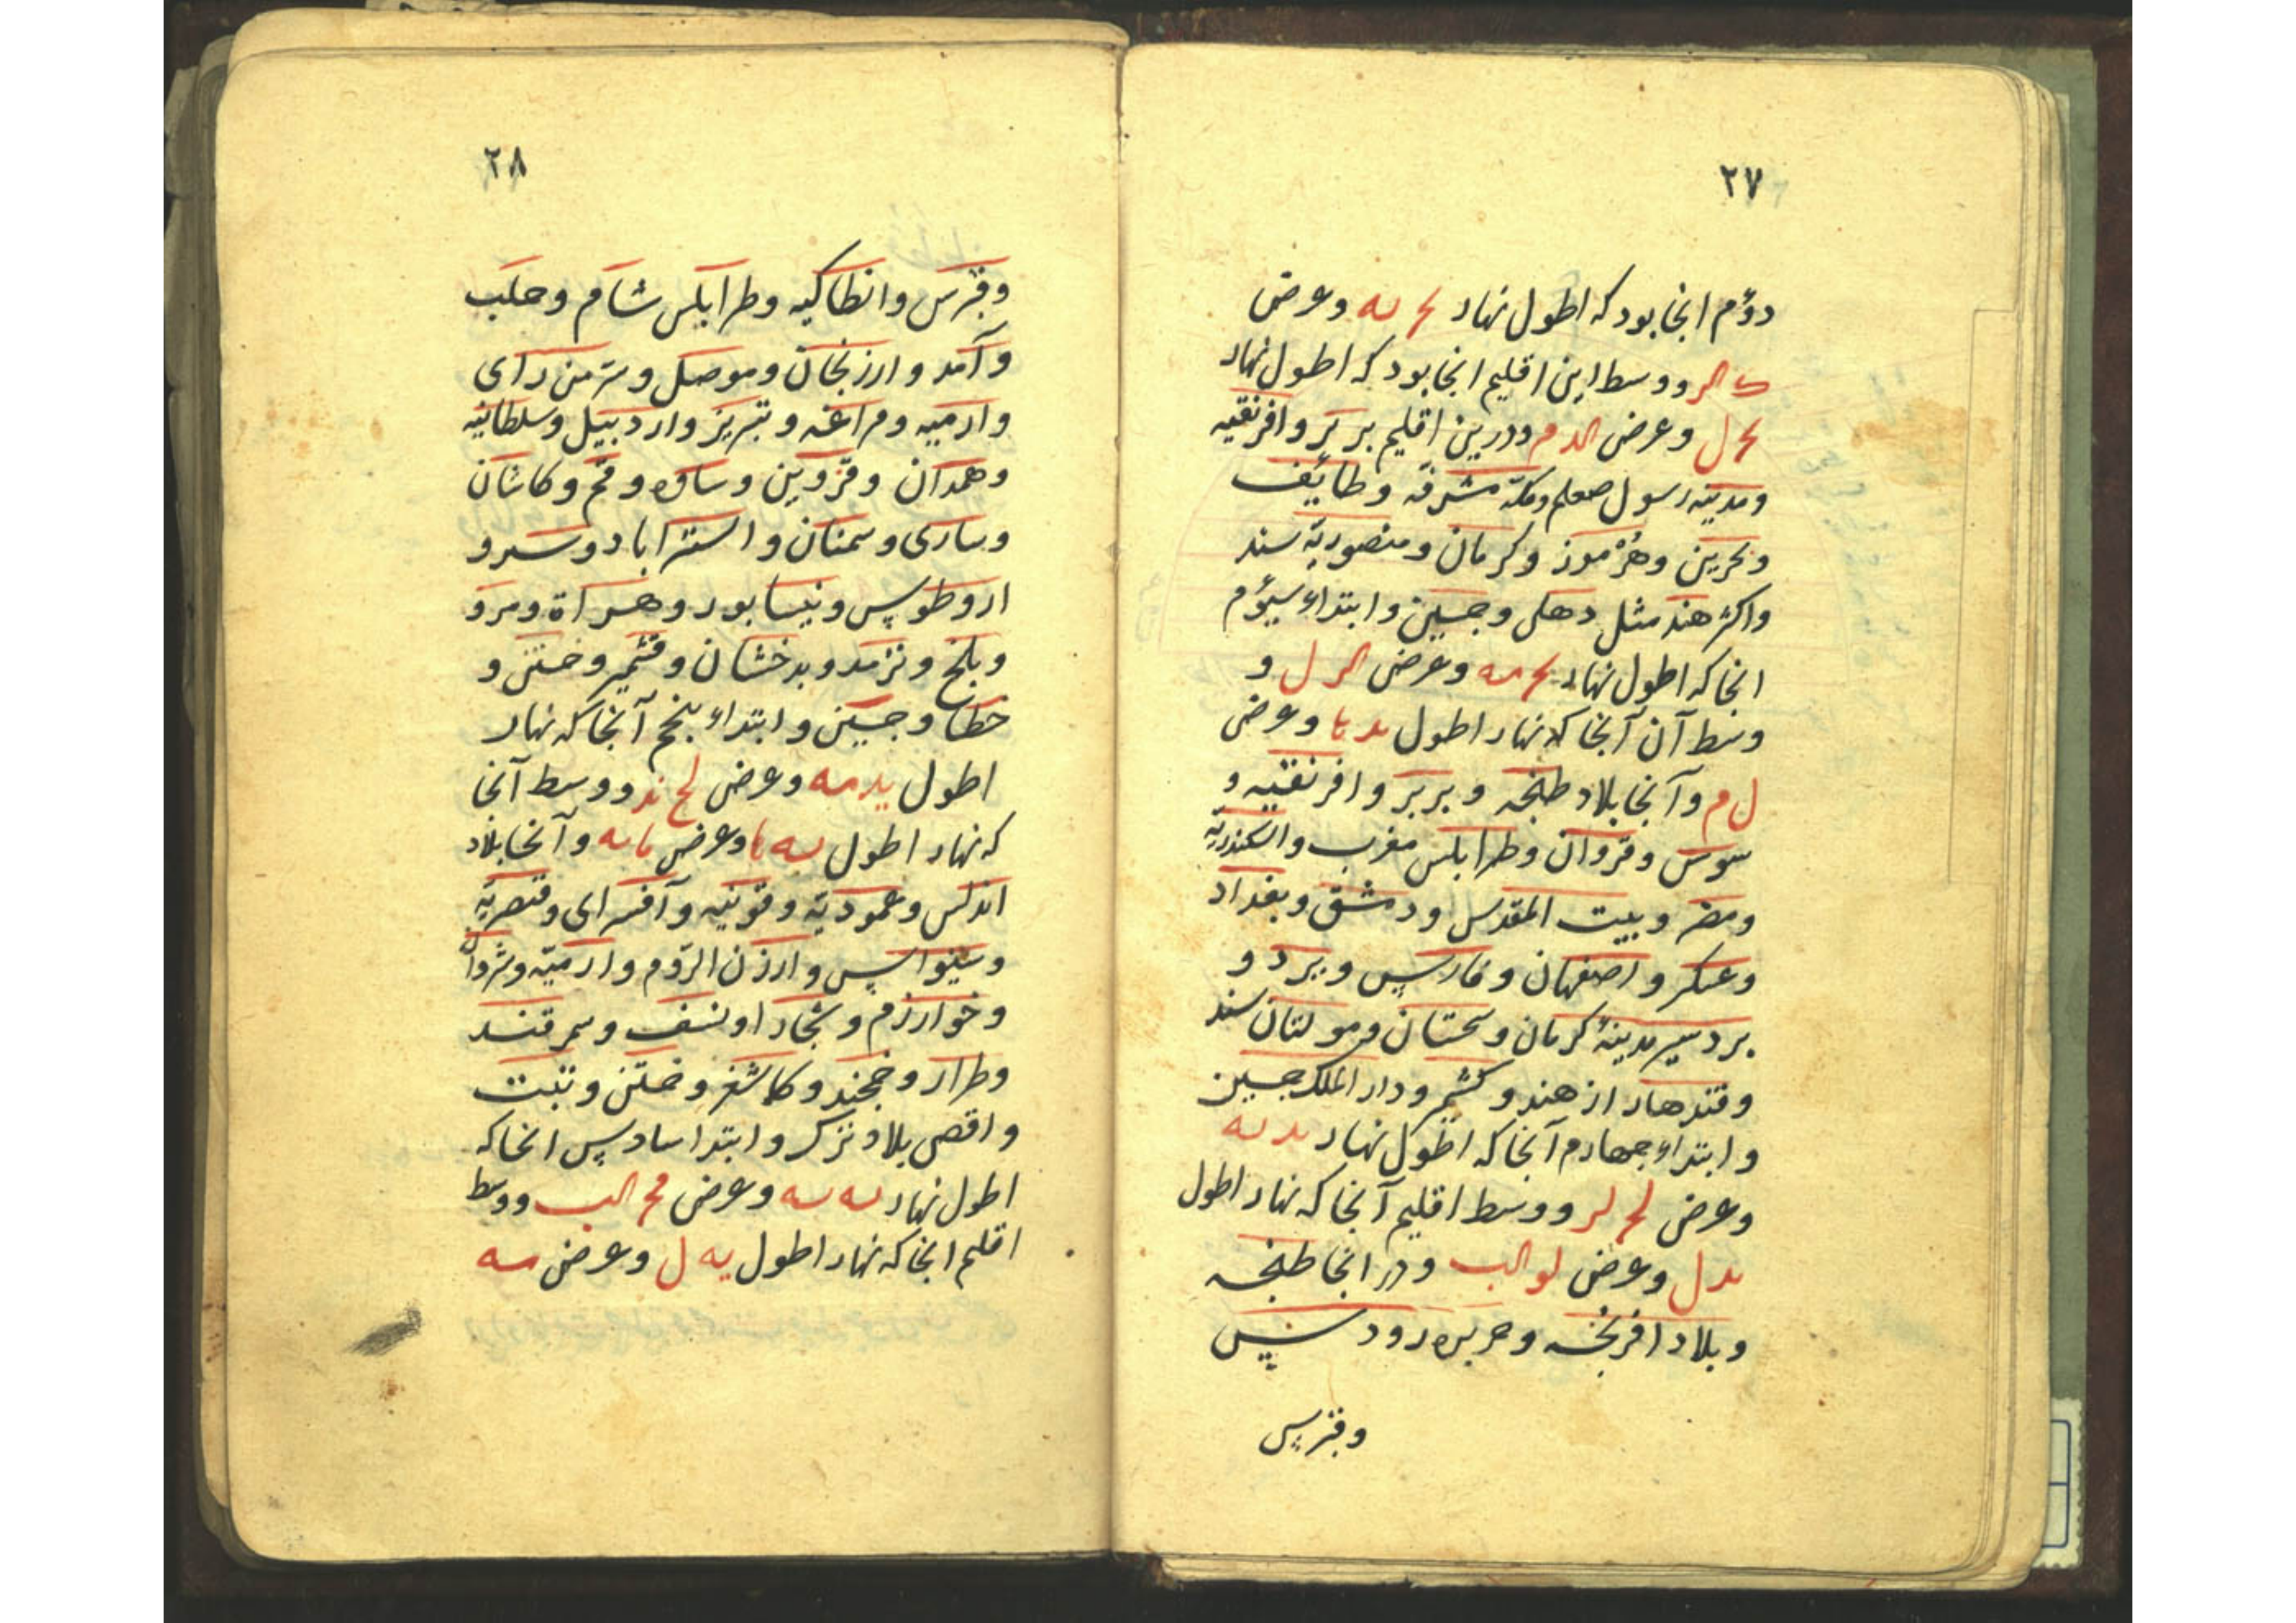 ۲۷
دوّم انجا بود که اطول نهار یح یه وعرض
ک الر ووسط این اقلیم انجا بود که اطول نهار
یح ل وعرض الد م ودرین اقلیم بربر وافرنقیه
ومدینه رسول صعلم ومکّه مشرفّه وطایٔف
وبحرین وهرموز وکرمان ومنصوریّه سند
واکثر هند مثل دهلی وچین وابتداء سیوٌم
انجا که اطول نهار یح مه وعرض الر ل و
وسط آن آنجا که نهار اطول ید یا وعرض
ل م وآنجا بلاد طنجه وبربر وافرنقیه و
سوس وقروان وطرابلس مغرب واسکندریّه
ومصر وبیت المقدس ودمشق وبغداد
وعسکر واصفهان وفارس ویزد و
بردسیر مدینهٔ کرمان وسجستان ومولتان سند
وقندهار از هند وکشمیر ودار الملک چین
وابتداء چهارم آنجا که اطول نهار ید یه
وعرض لح لر ووسط اقلیم آنجا که نهار اطول
ید ل وعرض لو الب ودر انجا طنجه
وبلاد افرنجه وجزیره رودس
وقبرس
۲۸
وقبرس وانطاکیه وطرابلس شام وحلب
وآمد وارزنجان وموصل وسرّ من رای
وارمیه ومراغه وتبریز واردبیل وسلطانیّه
وهمدان وقزوین وساوه وقم وکاشان
وساری وسمنان واستراباد وسبرو
ار وطوس ونیسابور وهراة ومرو
وبلخ وترمد وبدخشان وقشمیر وختن و
خطا وچین وابتداء پنجم آنجا که نهار
اطول ید مه وعرض لح ند ووسط آنجا
که نهار اطول یه یا وعرض ما یه وآنجا بلاد
اندلس وعموریّه وقونیه وآقسرای وقیصریّه
وسیواس وارزن الرّوم وارمیّه وشروان
وخوارزم وبخارا ونسف وسمرقند
وطرار وخجند وکاشغر وختن وتبت
واقصی بلاد ترک وابتدا سادس انجا که
اطول نهار یه یه وعرض مح الب ووسط
اقلیم انجا که نهار اطول یه ل وعرض مه